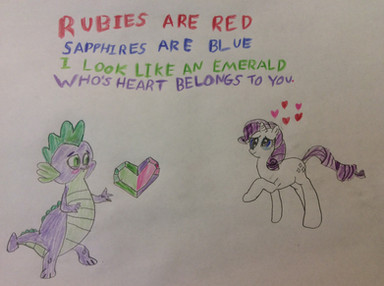 RUBIES ARE RED
SAPPHIRES ARE BLUE
I LOOK LIKE AN EMERALD
WHO'S HEART BELONGS TO YOU.